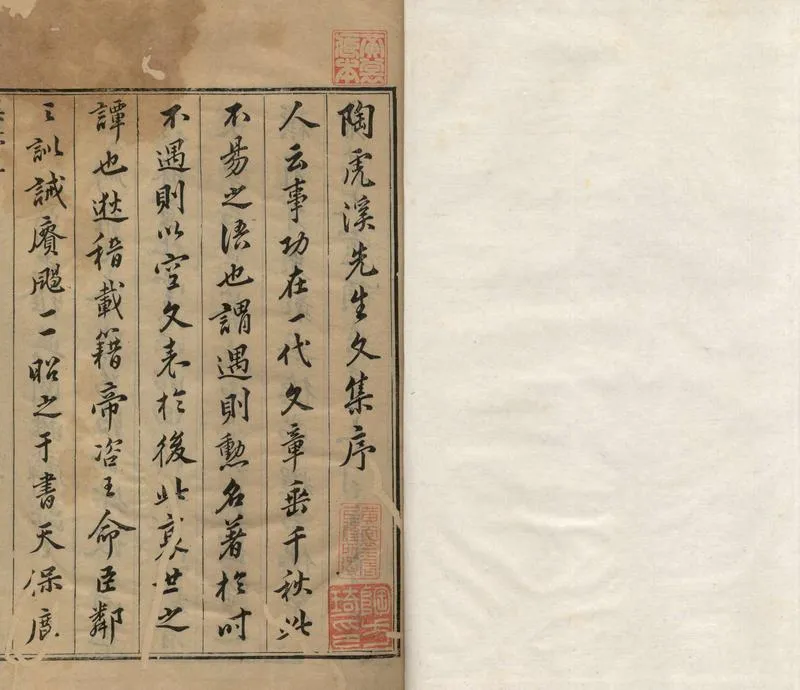 陶虎溪先生文集序
人云事功在一代文章垂千秋此
不易之語也謂遇則勲名著於时
不遇則以空文表於後此衰世之
譚也逖稽載籍帝咨王命臣鄰
之訓誡賡颺一一昭之于書天保